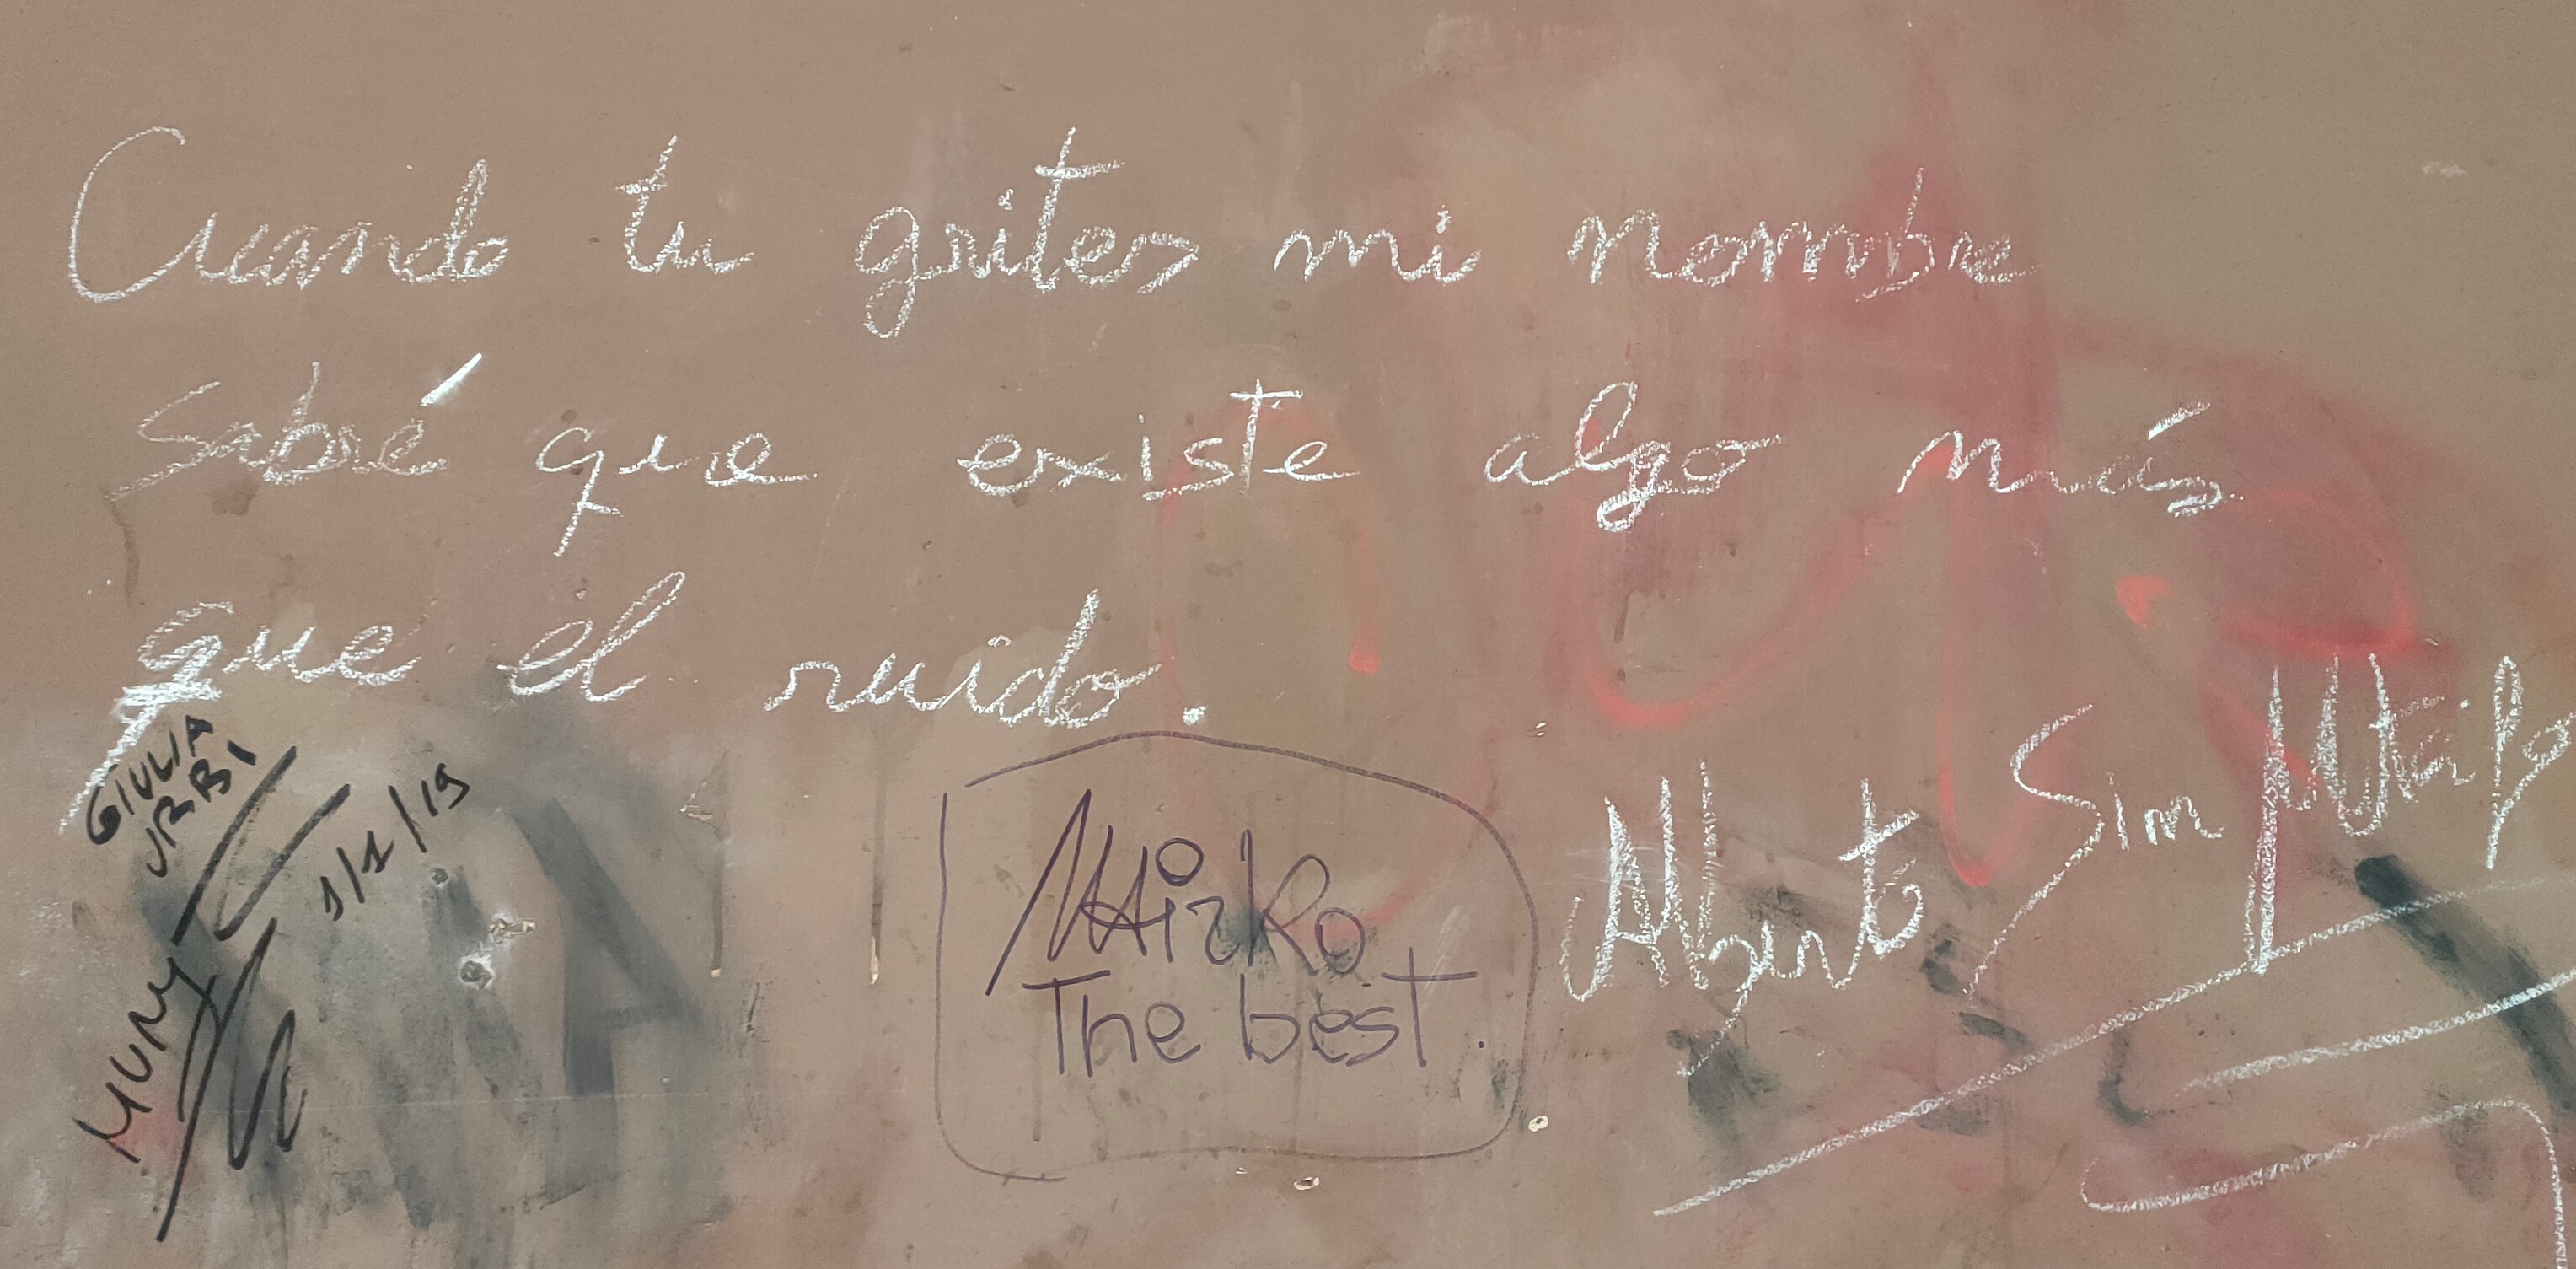 Cuando tu grites mi nombre
sabré que existe algo más
que el ruido.
GIULIA
URBI
1/1/19
Mirko
The best.
Alberto Sim